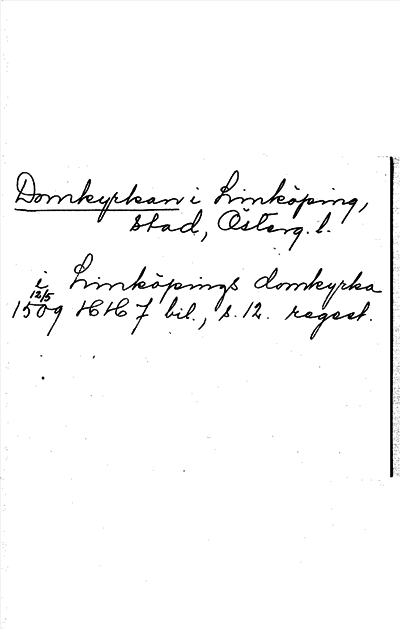 Domkyrkan i Linköping,
stad, Österg. l.
i Linköpings domkyrka
12/5
1509 HH 7 bil., s. 12. regest.